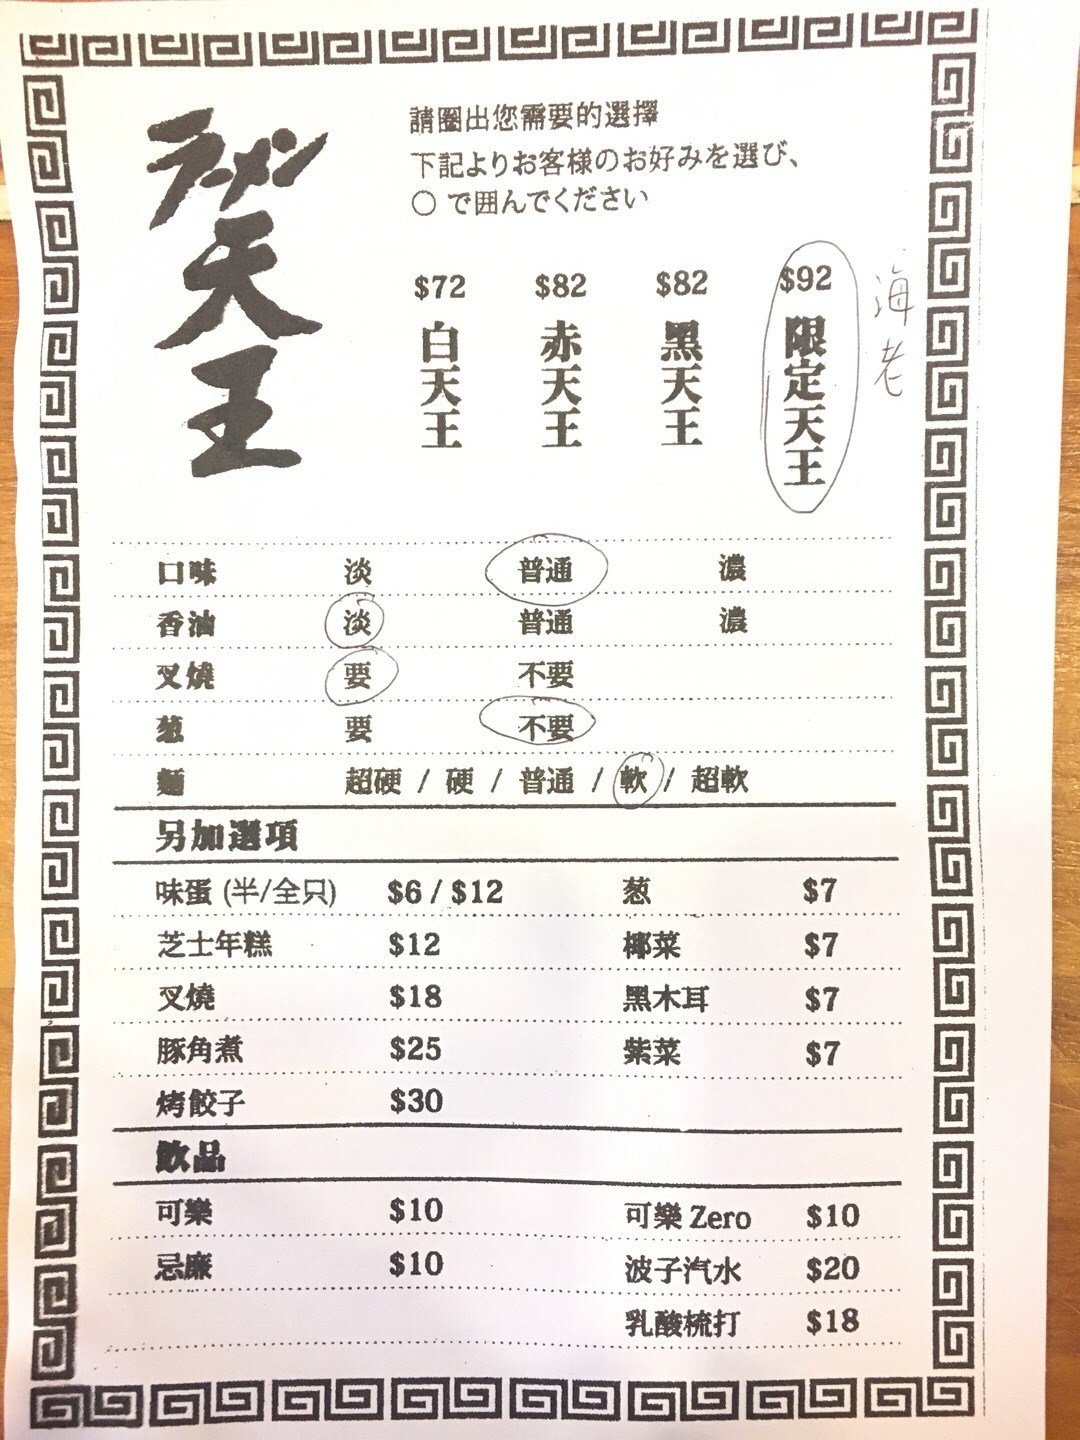 ラーメン
天王
請圈出您需要的選擇
下記よりお客様のお好みを選び、
○ で囲んでください
$72 $82 $82 $92
白天王 赤天王 黑天王 限定天王 海老
口味 淡 普通 濃
香油 淡 普通 濃
叉燒 要 不要
葱 要 不要
麵 超硬 / 硬 / 普通 / 軟 / 超軟
另加選項
味蛋 (半/全只) $6 / $12 葱 $7
芝士年糕 $12 椰菜 $7
叉燒 $18 黑木耳 $7
豚角煮 $25 紫菜 $7
烤餃子 $30
飲品
可樂 $10 可樂 Zero $10
忌廉 $10 波子汽水 $20
乳酸梳打 $18